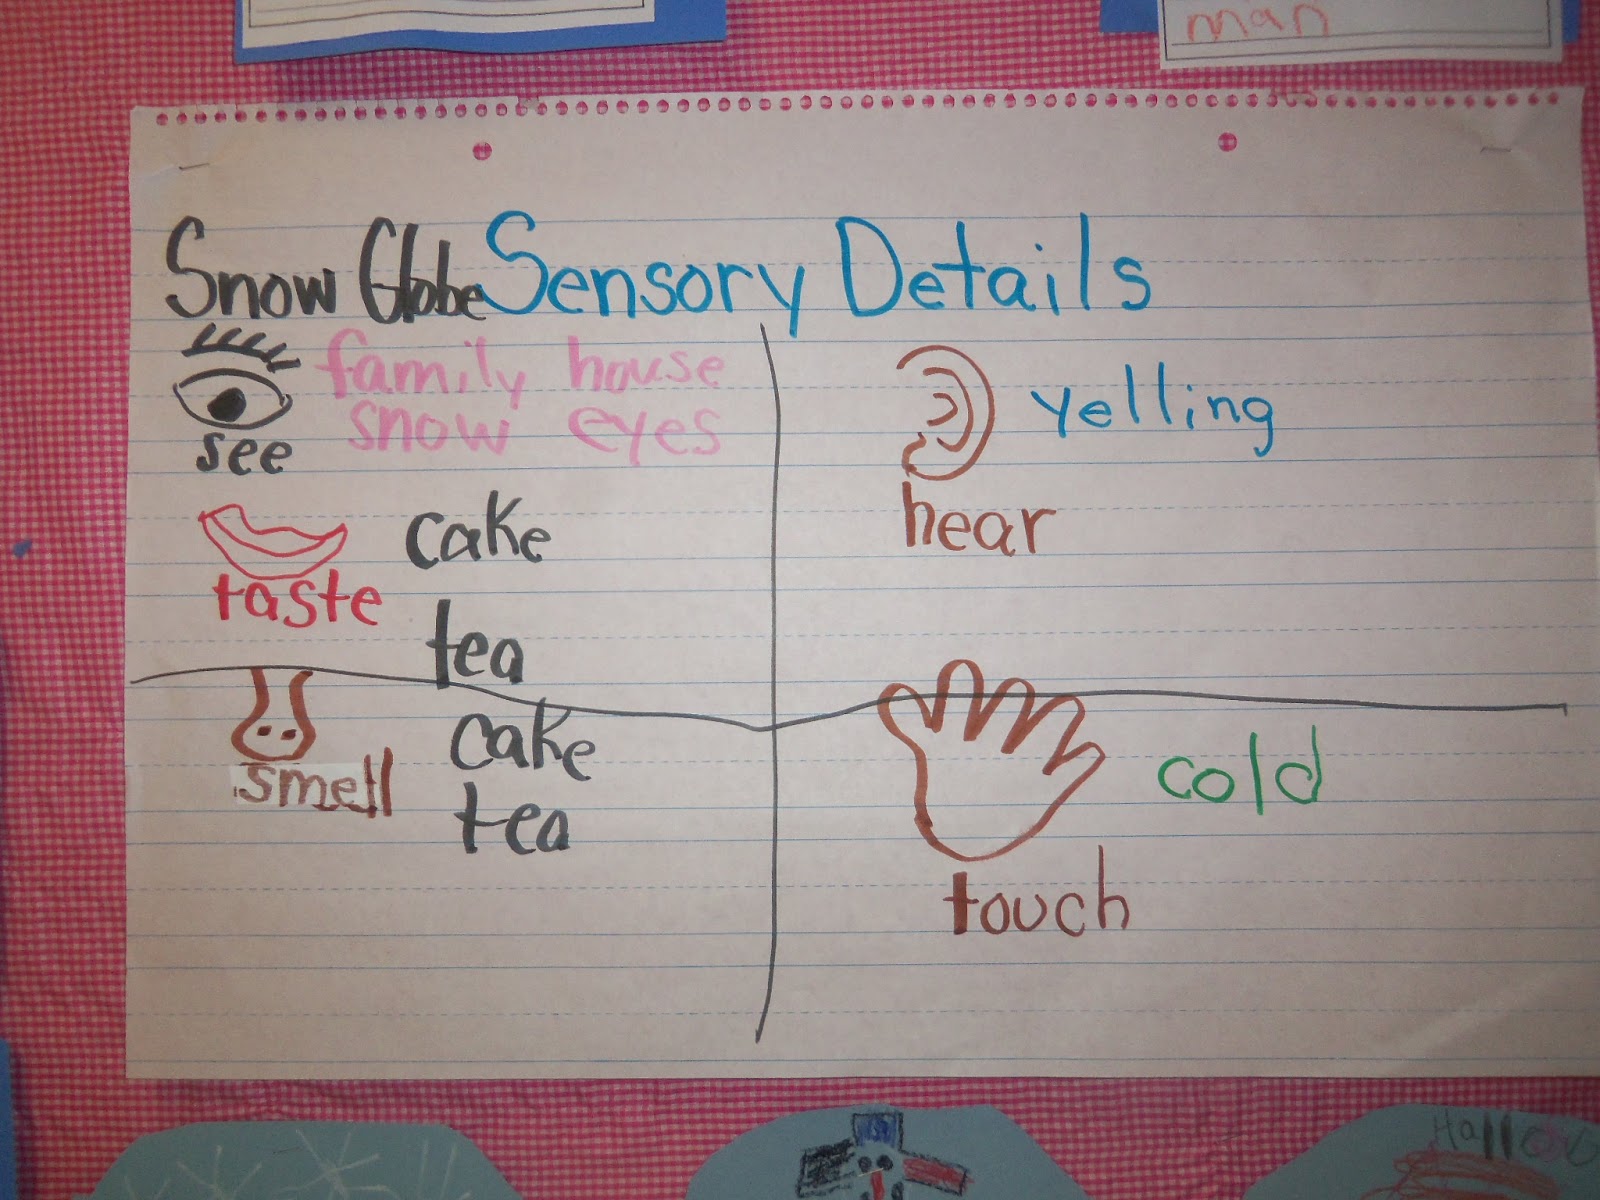 man
Snow Globe Sensory Details
family house
snow eyes
see
cake
taste
tea
yelling
hear
cake
smell
tea
cold
touch